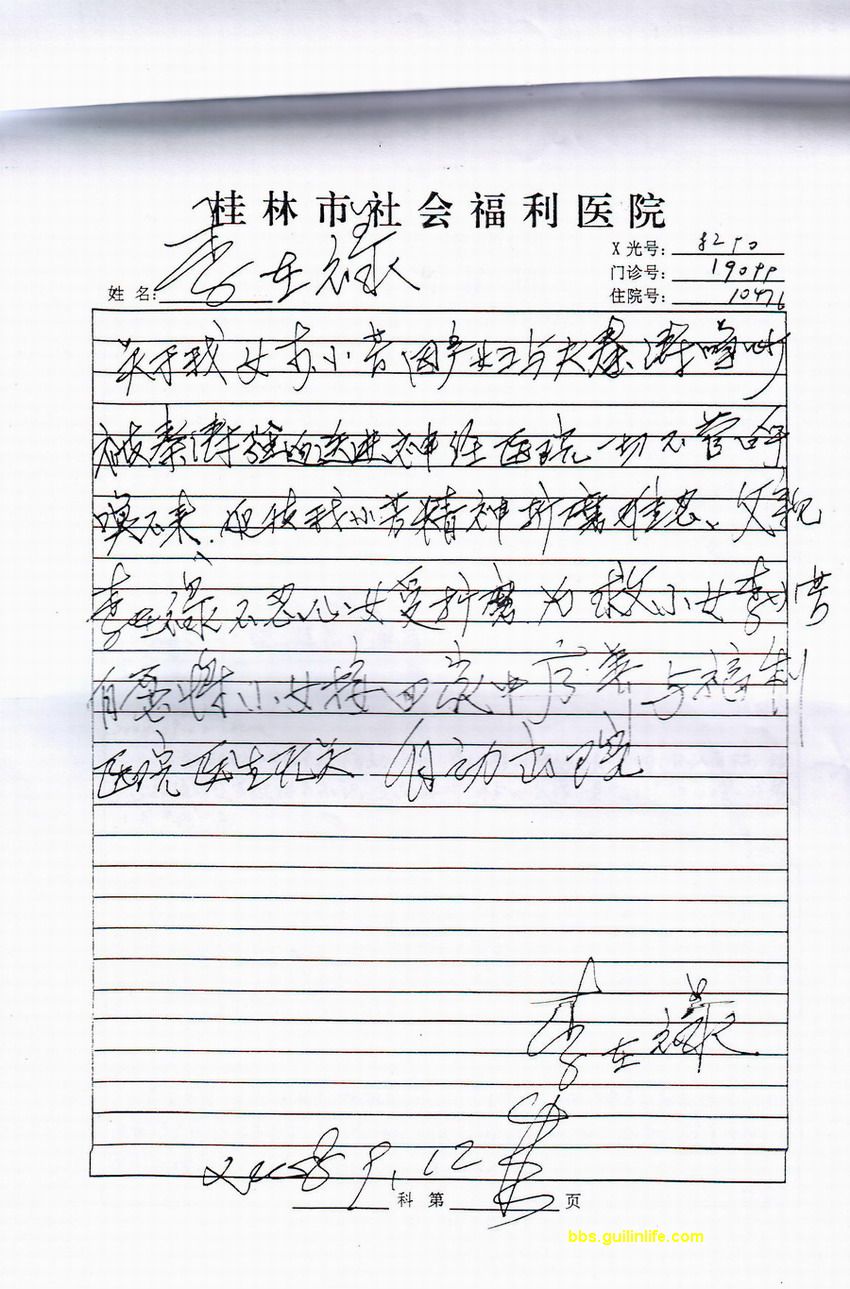 桂林市社会福利医院
X光号: 8290
门诊号: 19099
姓名: 李在禄
住院号: 10476
关于我女李小芳因产业与夫秦 吵
被秦 强 送进神经医院一切不管呼
唤不来、迫使我小芳精神折磨难忍、父亲
李在禄不忍心小女受折磨为救小女李小芳
自愿将小女接回家中 与福利
医院医生无关 自动出院
李在禄
2008 9.12
科 第 页
bbs.guilinlife.com